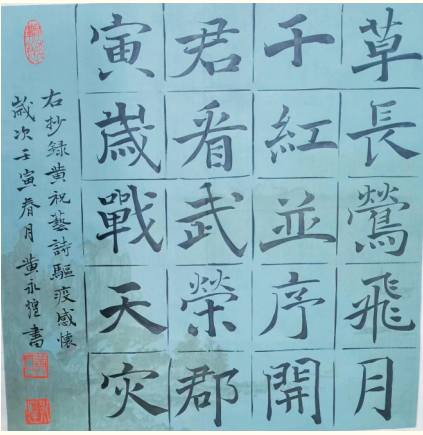 草長鶯飛月
千紅並序開
君看武榮郡
寅歲戰天灾
右抄録黄祝藝詩驅疫感懷
歲次壬寅春月黄永煌書